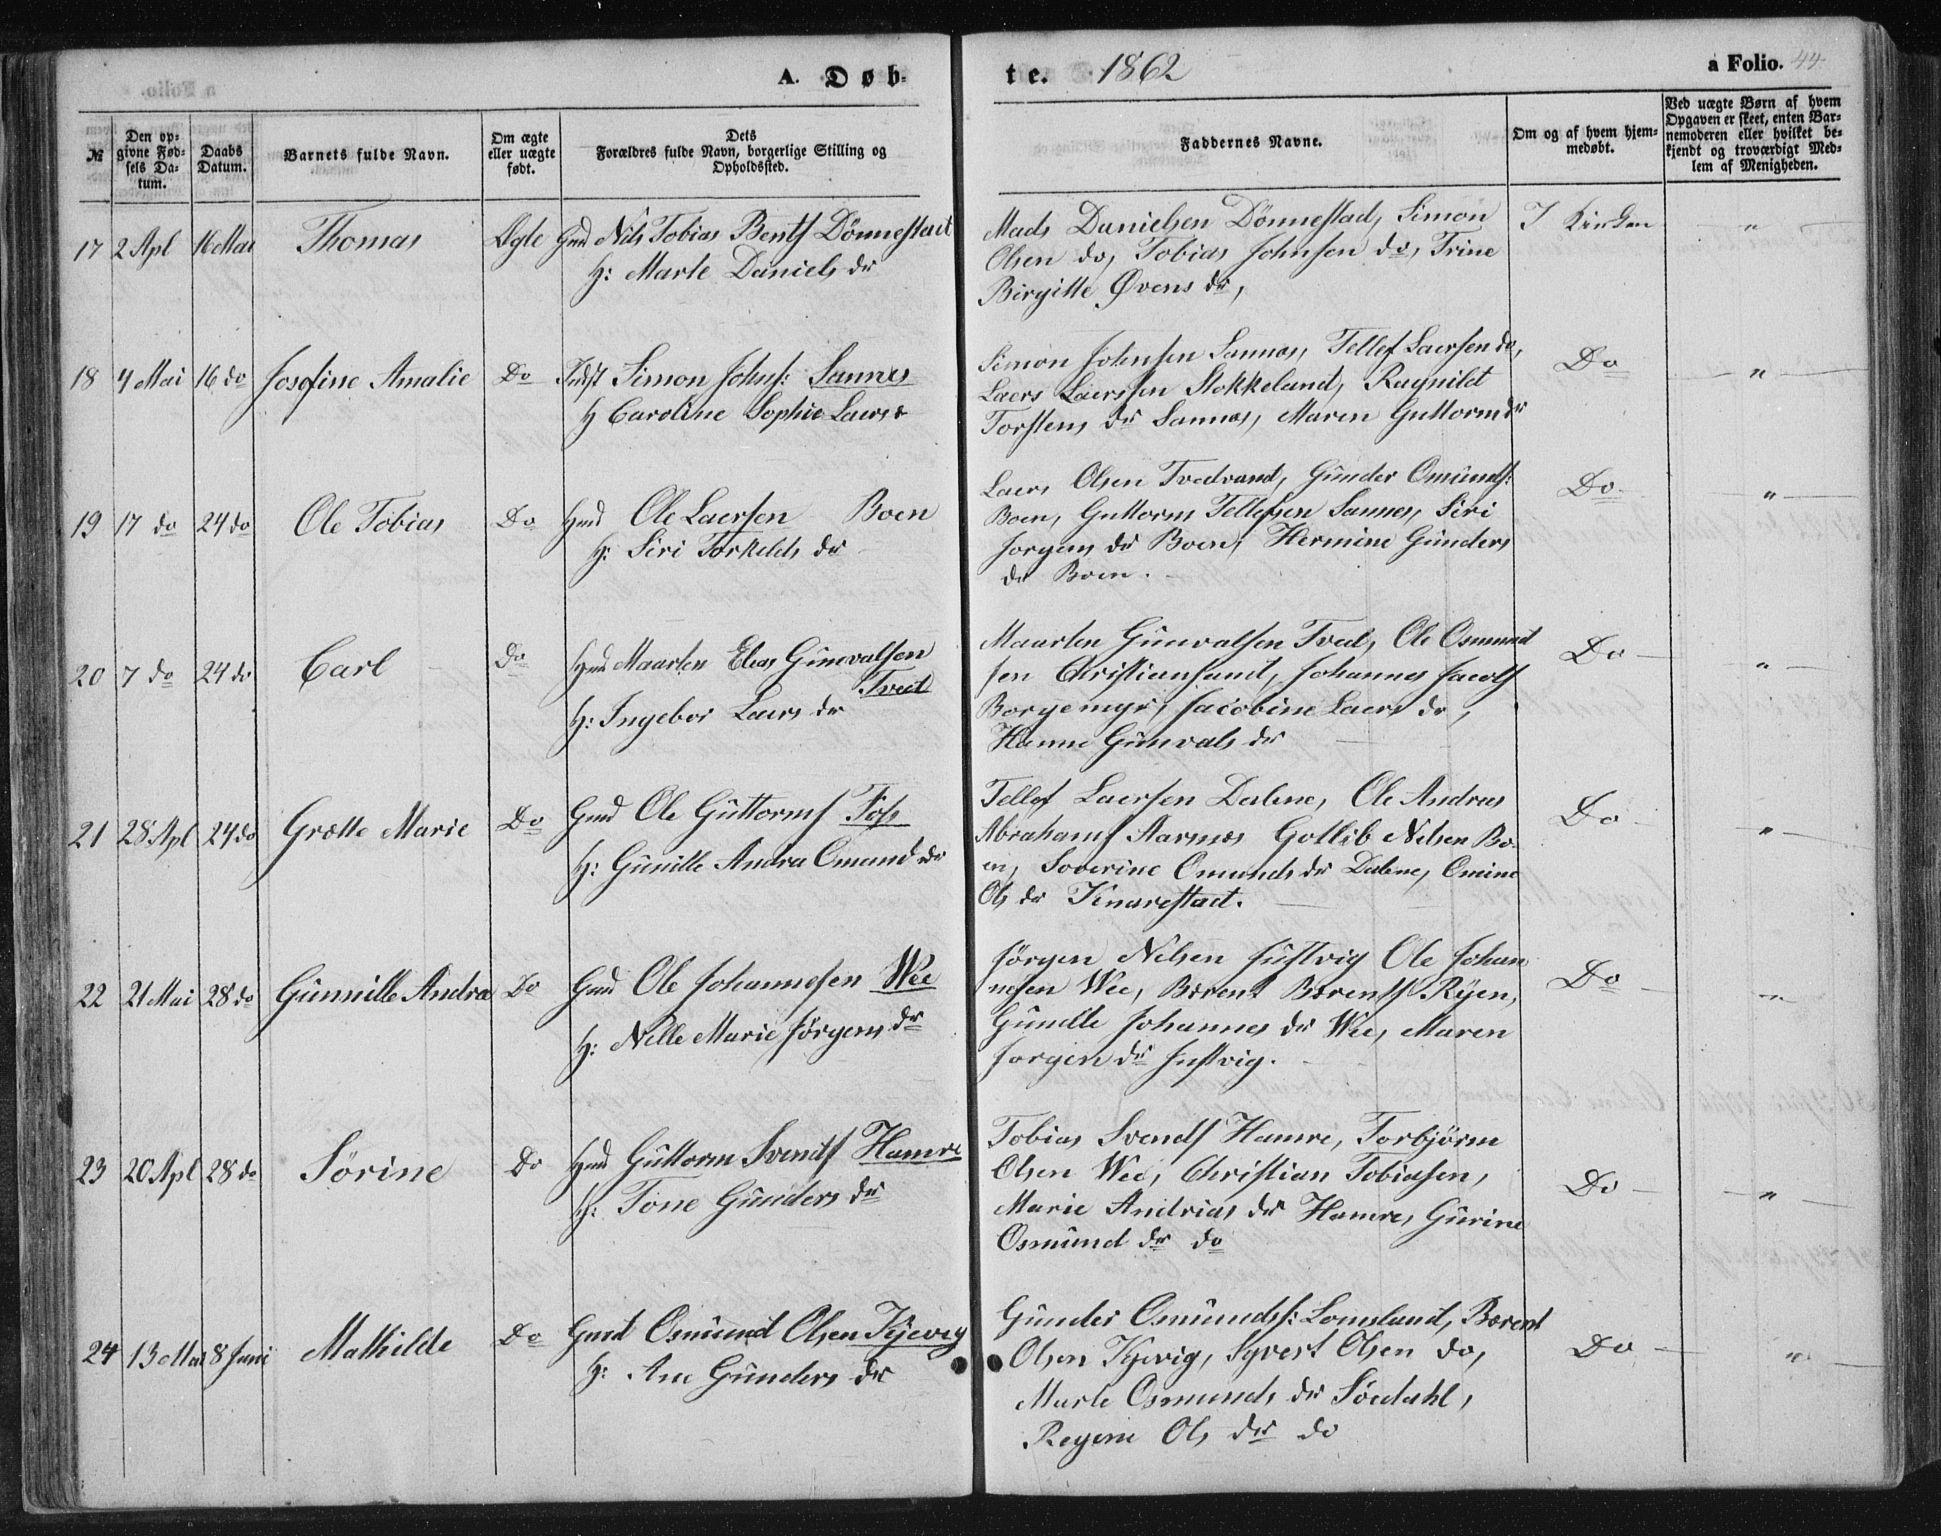 A. Døb-
te. 1862
a Folio. 44
№
Den op-
givne Fød-
sels Da-
tum.
Daabs
Datum.
Barnets fulde Navn.
Om ægte
eller uægte
født.
Dets
Forældres fulde Navn, borgerlige Stilling og
Opholdssted.
Faddernes Navne.
Om og af hvem hjem-
medøbt.
Ved uægte Børn af hvem
Opgaven er skeet, enten Bar-
nemoderen eller hvilket be-
kjendt og troværdigt Med-
lem af Menigheden.
17 2 Apl 16 Mai Thomas Ægte Gmd Nils Tobias Bents Dönnestad
H: Marte Daniels dr
Mads Danielsen Dönnestad, Simon
Olsen do, Tobias Johnsen do, Trine
Birgitte Øvens dr,
I Kirken "
18 4 Mai 16 do Josefine Amalie Do Simon Johns: Sannes
H Caroline Sophie Laers
Simon Johnsen Sannes, Tellef Laersen do,
Laers Laerssen Stokkeland, Ragnild
Torstens dr Sannes, Maren Guttorm dr
Do "
19 17 do 24 do Ole Tobias Do Hmd Ole Laersen Boen
H: Siri Torkelds dr
Laers Olsen Tvedvand, Gunder Omunds:
Boen, Guttorm Tellefsen Sannes, Siri
Jorgens dr Boen, Hermine Gunders
dr Boen.
Do "
20 7 do 24 do Carl Do Hmd Maarten Elias Gunvalsen
Tveit
H: Ingebor Laers dr
Maarten Gunvalsen Tved, Ole Osmund
sen Christiansand, Johannes Jacobs
Borgemyr, Jacobine Laers dr,
Hanne Gunvals dr
Do "
21 28 Apl 24 do Grætte Marie Do Gmd Ole Guttorms Foss
H: Gunille Andra Omunds dr
Tellef Laersen Dalene, Ole Andras
Abrahams Aarnes Gotlib Nilsen Bo-
en, Soverine Omunds dr Dalene, Omine
Ols dr Kinarestad.
Do "
22 21 Mai 28 do Gunnille Andrea Do Gmd Ole Johannesen Wee
H: Nille Marie Jörgens dr
Jörgen Nilsen Justvig Ole Johan
nesen Wee, Bærent Bærents Ryen,
Gunille Johannes dr Wee, Maren
Jorgen dr Justvig.
Do "
23 20 Apl 28 do Sörine Do Hmd Guttorm Svends Hamre
H: Tone Gunders dr
Tobias Svends Hamre, Torbjörn
Olsen Wee, Christian Tobiasen,
Marie Andrias dr Hamre, Gurine
Osmund dr do
Do "
24 13 Mai 8 Juni Mathilde Do Gmd Osmund Olsen Kjevig
H: Ane Gunders dr
Gunder Osmunds: Lomsland, Bærent
Olsen Kjevig, Syvert Olsen do,
Marte Osmunds dr Söedahl,
Regine Ols dr do
Do "